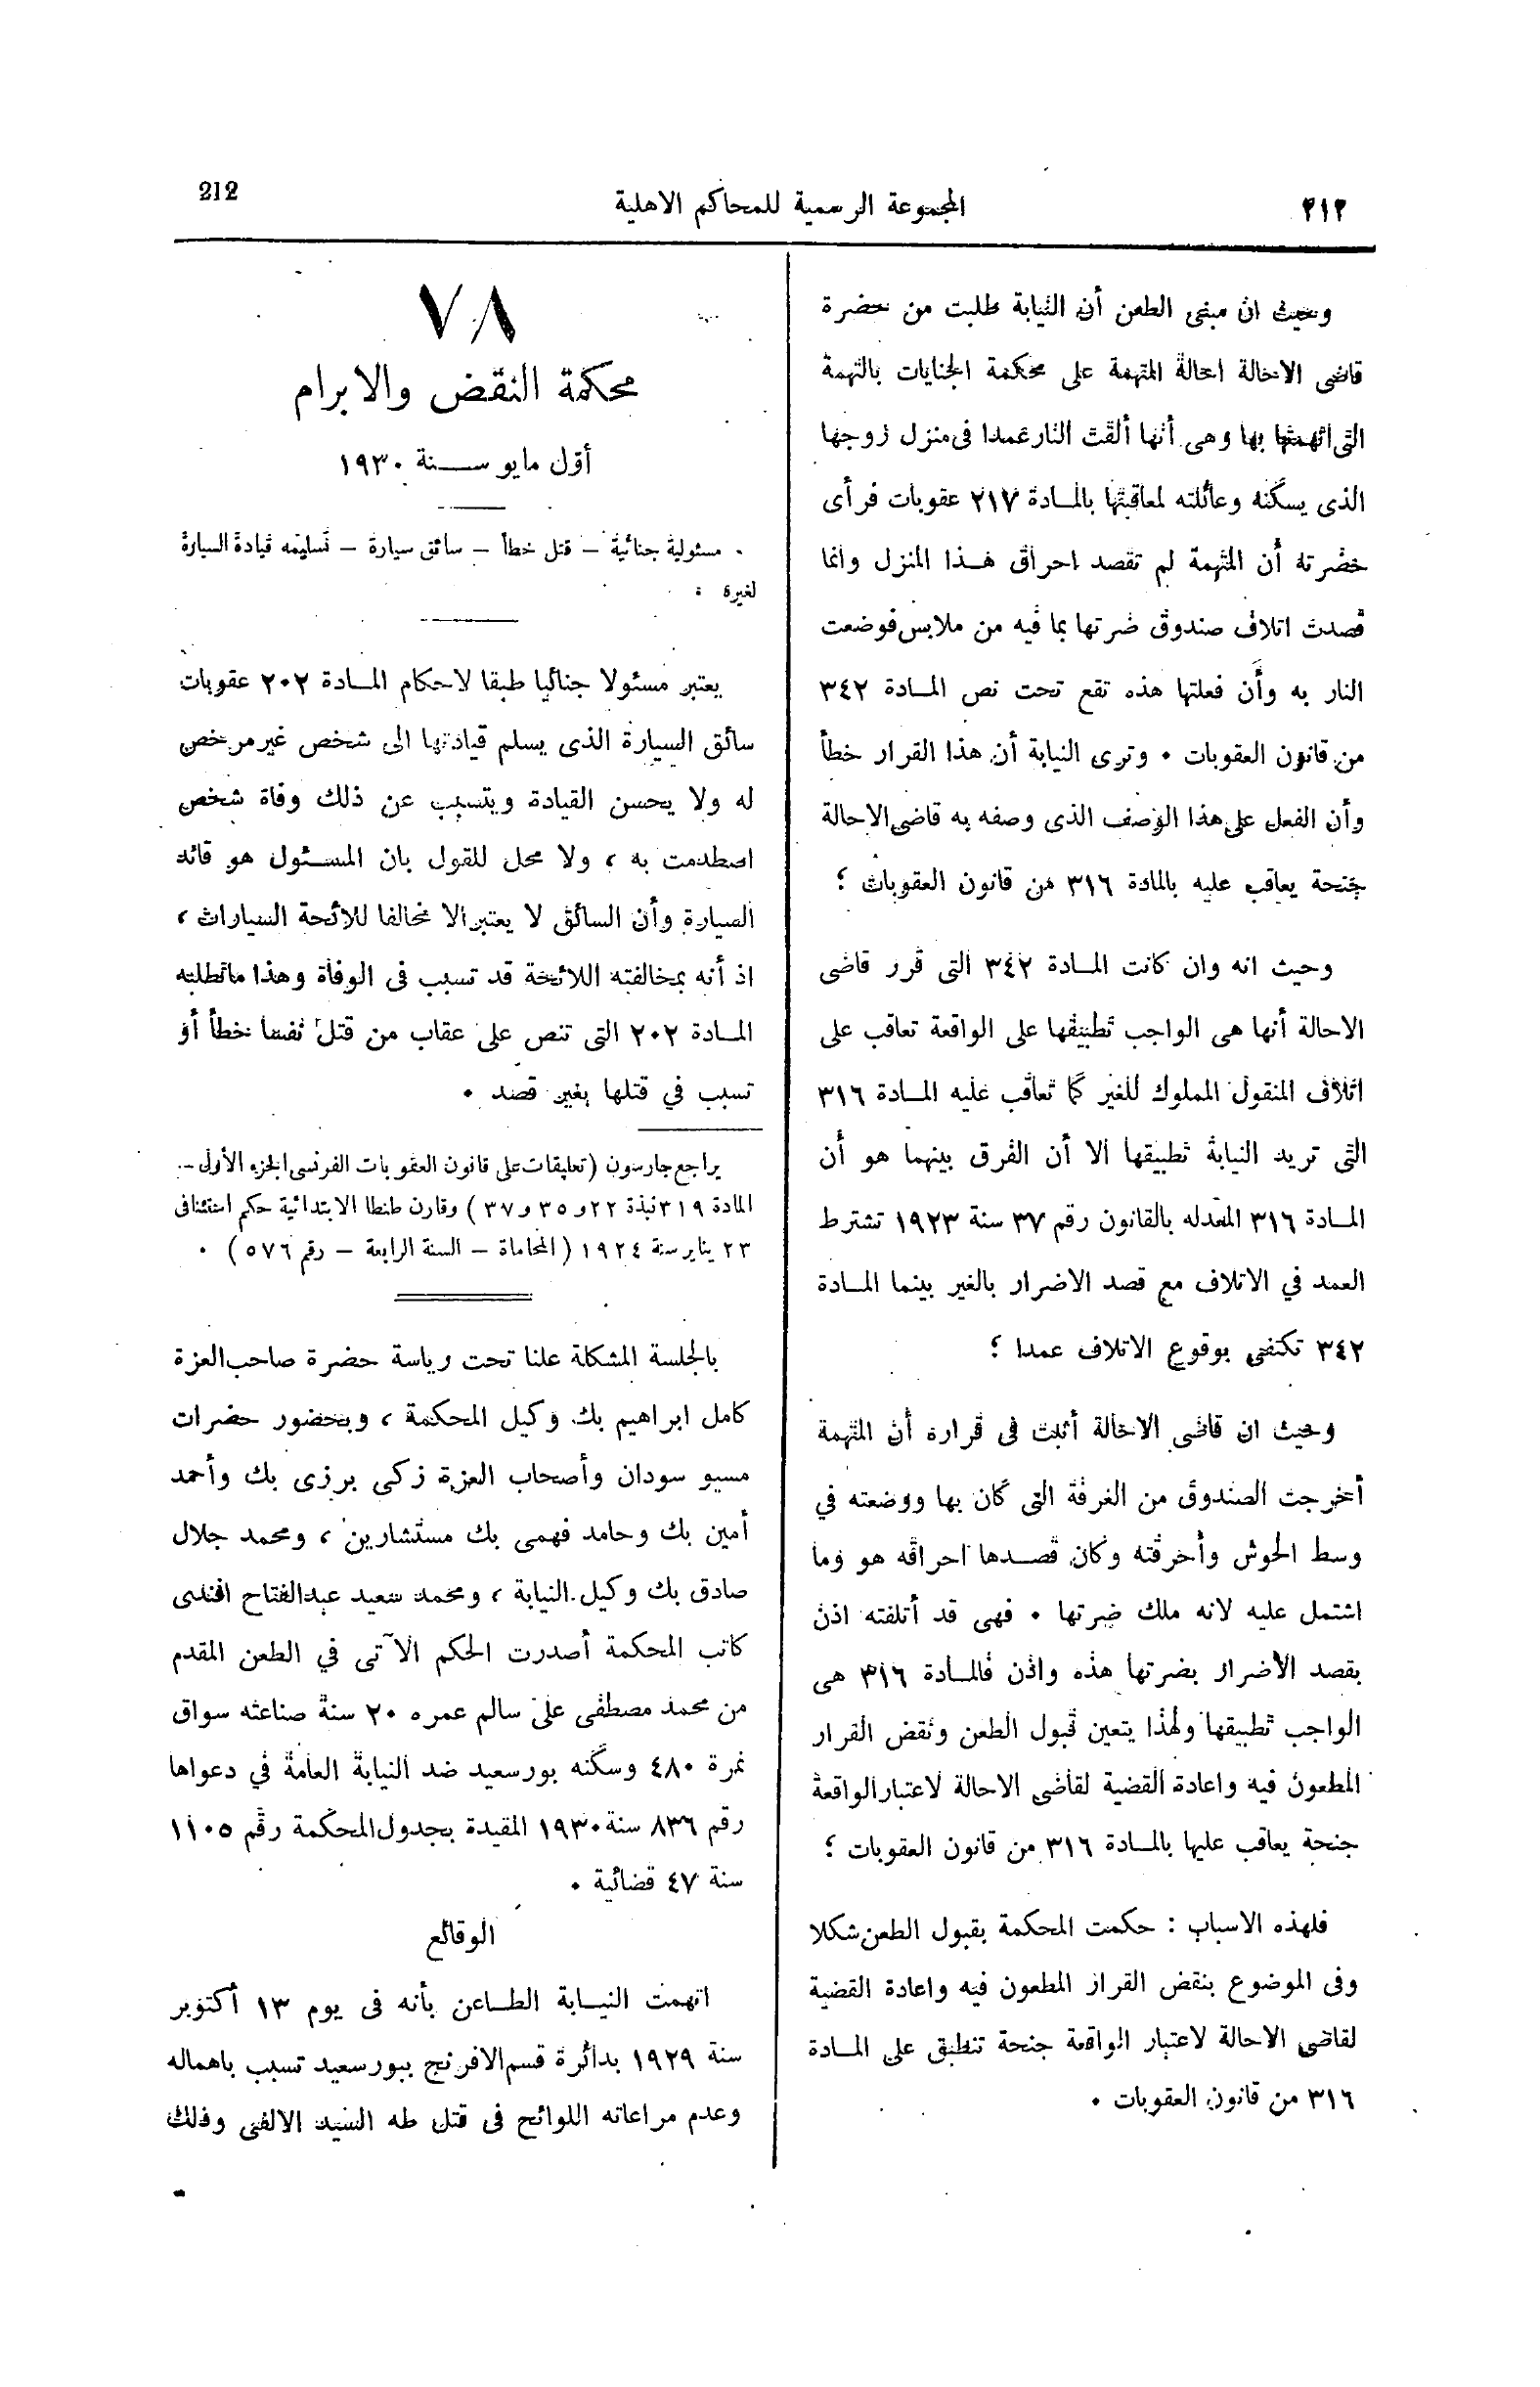 ٢١٢
المجموعة الرسمية للمحاكم الاهلية
212
وحيث ان مبنى الطعن أن النيابة طلبت من حضرة
قاضى الاحالة احالة المتهمة على محكمة الجنايات بالتهمة
التى اتهمتها بها وهى أنها ألقت النار عمدا فى منزل زوجها
الذى يسكنه وعائلته لمعاقبتها بالمادة ٢١٧ عقوبات فرأى
حضرته أن المتهمة لم تقصد احراق هذا المنزل وانما
قصدت اتلاف صندوق ضرتها بما فيه من ملابس فوضعت
النار به وأن فعلتها هذه تقع تحت نص المادة ٣٤٢
من قانون العقوبات . وترى النيابة أن هذا القرار خطأ
وأن الفعل على هذا الوصف الذى وصفه به قاضى الاحالة
جنحة يعاقب عليه بالمادة ٣١٦ من قانون العقوبات ؛
وحيث انه وان كانت المادة ٣٤٢ التى قرر قاضى
الاحالة أنها هى الواجب تطبيقها على الواقعة تعاقب على
اتلاف المنقول المملوك للغير كما تعاقب عليه المادة ٣١٦
التى تريد النيابة تطبيقها الا أن الفرق بينهما هو أن
المادة ٣١٦ المعدله بالقانون رقم ٣٧ سنة ١٩٢٣ تشترط
العمد في الاتلاف مع قصد الاضرار بالغير بينما المادة
٣٤٢ تكتفى بوقوع الاتلاف عمدا ؛
وحيث ان قاضى الاحالة أثبت فى قراره أن المتهمة
أخرجت الصندوق من الغرفة التى كان بها ووضعته في
وسط الحوش وأحرقته وكان قصدها احراقه هو وما
اشتمل عليه لانه ملك ضرتها . فهى قد أتلفته اذن
بقصد الاضرار بضرتها هذه واذن فالمادة ٣١٦ هى
الواجب تطبيقها ولهذا يتعين قبول الطعن ونقض القرار
المطعون فيه واعادة القضية لقاضى الاحالة لاعتبار الواقعة
جنحة يعاقب عليها بالمادة ٣١٦ من قانون العقوبات ؛
فلهذه الاسباب : حكمت المحكمة بقبول الطعن شكلا
وفى الموضوع بنقض القرار المطعون فيه واعادة القضية
لقاضى الاحالة لاعتبار الواقعة جنحة تنطبق على المادة
٣١٦ من قانون العقوبات .
٧٨
محكمة النقض والابرام
أول مايو سنة ١٩٣٠
مسئولية جنائية – قتل خطأ – سائق سيارة – تسليمه قيادة السيارة
لغيره .
يعتبر مسئولا جنائيا طبقا لاحكام المادة ٢٠٢ عقوبات
سائق السيارة الذى يسلم قيادتها الى شخص غير مرخص
له ولا يحسن القيادة ويتسبب عن ذلك وفاة شخص
اصطدمت به ، ولا محل للقول بان المسئول هو قائد
السيارة وأن السائق لا يعتبر الا مخالفا للائحة السيارات ،
اذ أنه بمخالفته اللائحة قد تسبب فى الوفاة وهذا ماتطلبه
المادة ٢٠٢ التى تنص على عقاب من قتل نفسا خطأ أو
تسبب في قتلها بغير قصد .
يراجع جارسون (تعليقات على قانون العقوبات الفرنسى الجزء الأول –
المادة ٣١٩ نبذة ٢٢ و٣٥ و٣٧) وقارن طنطا الابتدائية حكم استئنافى
٢٣ يناير سنة ١٩٢٤ (المحاماة – السنة الرابعة – رقم ٥٧٦) .
بالجلسة المشكلة علنا تحت رياسة حضرة صاحب العزة
كامل ابراهيم بك وكيل المحكمة ، وبحضور حضرات
مسيو سودان وأصحاب العزة زكى برزى بك وأحمد
أمين بك وحامد فهمى بك مستشارين ، ومحمد جلال
صادق بك وكيل النيابة ، ومحمد سعيد عبد الفتاح افندى
كاتب المحكمة أصدرت الحكم الآتى في الطعن المقدم
من محمد مصطفى على سالم عمره ٢٠ سنة صناعته سواق
نمرة ٤٨٠ وسكنه بورسعيد ضد النيابة العامة في دعواها
رقم ٨٣٦ سنة ١٩٣٠ المقيدة بجدول المحكمة رقم ١١٠٥
سنة ٤٧ قضائية .
الوقائع
اتهمت النيابة الطاعن بأنه فى يوم ١٣ أكتوبر
سنة ١٩٢٩ بدائرة قسم الافرنج ببورسعيد تسبب باهماله
وعدم مراعاته اللوائح فى قتل طه السيد الالفى وذلك